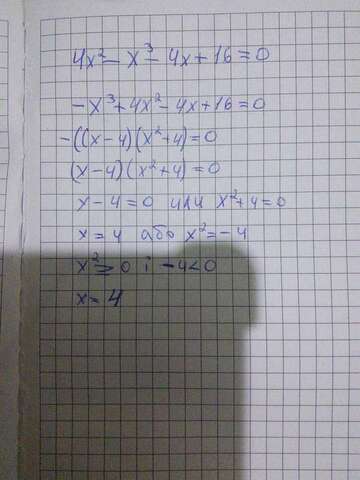 4x² - x³ - 4x + 16 = 0
-x³ + 4x² - 4x + 16 = 0
-((x-4)(x²+4) = 0
(x-4)(x²+4) = 0
x - 4 = 0 или x² + 4 = 0
x = 4 або x² = -4
x² ≥ 0 і -4 < 0
x = 4